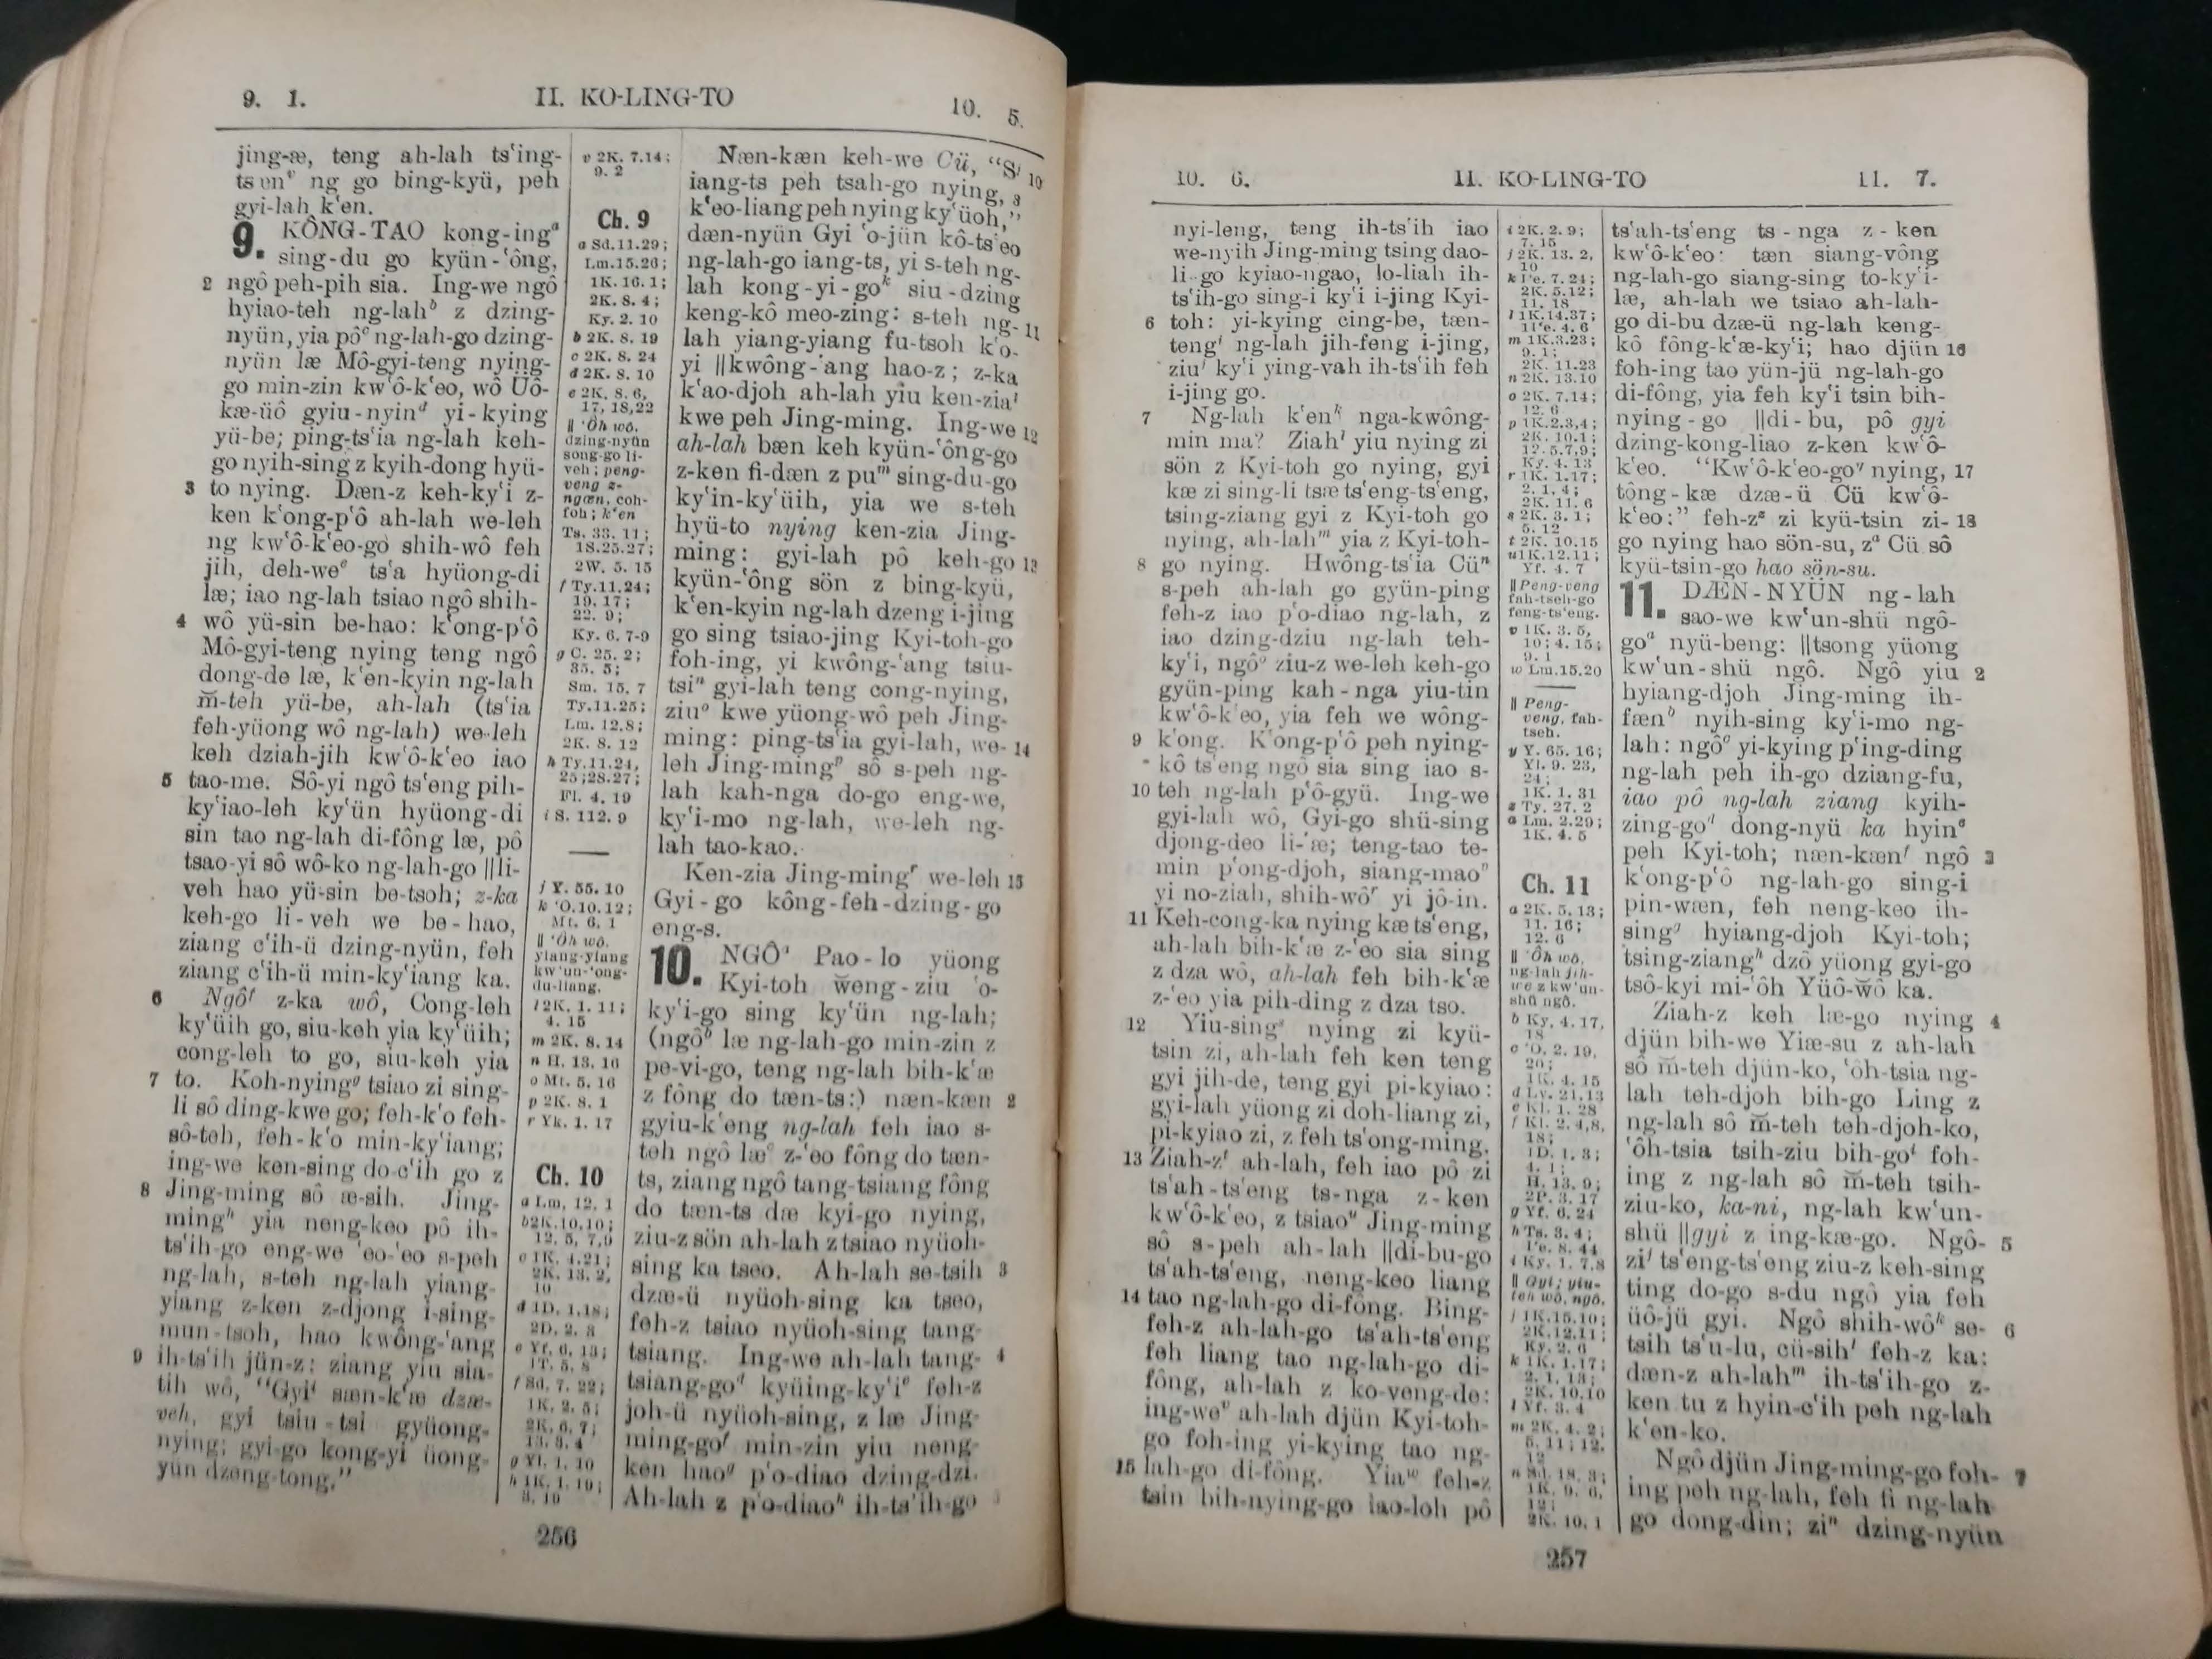 9. 1. II. KO-LING-TO 10. 5.
jing-æ, teng ah-lah ts‘ing-
ng go bing-kyü, peh
gyi-lah k‘en.
9. KÔNG-TAO kong-ingᵃ
sing-du go kyün-‘ông,
2 ngô peh-pih sia. Ing-we ngô
hyiao-teh ng-lahᵇ z dzing-
nyün, yia pôᶜ ng-lah-go dzing-
nyün læ Mô-gyi-teng nying-
go min-zin kw‘ô-k‘eo, wô Üô-
kæ-üô gyiu-nyinᵈ yi-kying
yü-be; ping-ts‘ia ng-lah keh-
go nyih-sing z kyih-dong hyü-
3 to nying. Dæn-z keh-ky‘i z-
ken k‘ong-p‘ô ah-lah we-leh
ng kw‘ô-k‘eo-go shih-wô feh
jih, deh-weᵉ ts‘a hyüong-di
læ; iao ng-lah tsiao ngô shih-
4 wô yü-sin be-hao: k‘ong-p‘ô
Mô-gyi-teng nying teng ngô
dong-de læ, k‘en-kyin ng-lah
m̆-teh yü-be, ah-lah (ts‘ia
feh-yüong wô ng-lah) we-leh
keh dziah-jih kw‘ô-k‘eo iao
5 tao-me. Sô-yi ngô ts‘eng pih-
ky‘iao-leh ky‘ün hyüong-di
sin tao ng-lah di-fông læ, pô
tsao-yi sô wô-ko ng-lah-go ||li-
veh hao yü-sin be-tsoh; z-ka
keh-go li-veh we be-hao,
ziang c‘ih-ü dzing-nyün, feh
ziang c‘ih-ü min-ky‘iang ka.
6 Ngôᶠ z-ka wô, Cong-leh
ky‘üih go, siu-keh yia ky‘üih;
cong-leh to go, siu-keh yia
7 to. Koh-nyingᵍ tsiao zi sing-
li sô ding-kwe go; feh-k‘o feh-
sô-teh, feh-k‘o min-ky‘iang;
ing-we ken-sing do-c‘ih go z
8 Jing-ming sô æ-sih. Jing-
mingʰ yia neng-keo pô ih-
ts‘ih-go eng-we ‘eo-‘eo s-peh
ng-lah, s-teh ng-lah yiang-
yiang z-ken z-djong i-sing-
mun-tsoh, hao kwông-‘ang
9 ih-ts‘ih jün-z: ziang yiu sia-
tih wô, “Gyiⁱ sæn-k‘æ dzæ-
veh, gyi tsiu-tsi gyüong-
nying; gyi-go kong-yi üong-
yün dzeng-tong.”
v 2K. 7.14;
9. 2
Ch. 9
a Sd.11.29;
Lm.15.26;
1K. 16. 1;
2K. 8. 4;
Ky. 2. 10
b 2K. 8. 19
c 2K. 8. 24
d 2K. 8. 10
e 2K. 8. 6,
17, 18,22
|| ‘Ôh wô,
dzing-nyün
song-go li-
veh; peng-
veng z-
ngæn, coh-
foh; k‘en
Ts. 33. 11;
1S.25.27;
2W. 5. 15
f Ty.11.24;
19. 17;
22. 9;
Ky. 6. 7-9
g C. 25. 2;
35. 5;
Sm. 15. 7
Ty.11.25;
Lm. 12.8;
2K. 8. 12
h Ty.11.24,
25;28.27;
Fl. 4. 19
i S. 112. 9
j Y. 55. 10
k ‘O.10.12;
Mt. 6. 1
|| ‘Ôh wô,
yiang-yiang
kw‘un-‘ong-
du-liang.
l 2K. 1. 11;
4. 15
m 2K. 8. 14
n H. 13. 16
o Mt. 5. 16
p 2K. 8. 1
r Yk. 1. 17
Ch. 10
a Lm. 12. 1
b2K.10.10;
12. 5, 7,9
c 1K. 4.21;
2K. 13. 2,
10
d 1D. 1.18;
2D. 2. 3
e Yf. 6. 13;
1T. 5. 8
f Sd. 7. 22;
1K. 2. 5;
2K. 6. 7;
13. 3. 4
g Yl. 1. 10
h 1K. 1. 19;
3. 19
Næn-kæn keh-we Cü, “S- 10
iang-ts peh tsah-go nying,
k‘eo-liang peh nying ky‘üoh,”
dæn-nyün Gyi ‘o-jün kô-ts‘eo
ng-lah-go iang-ts, yi s-teh ng-
lah kong-yi-goᵏ siu-dzing
keng-kô meo-zing: s-teh ng- 11
lah yiang-yiang fu-tsoh k‘o-
yi ||kwông-‘ang hao-z; z-ka
k‘ao-djoh ah-lah yiu ken-ziaˡ
kwe peh Jing-ming. Ing-we 12
ah-lah bæn keh kyün-‘ông-go
z-ken fi-dæn z puᵐ sing-du-go
ky‘in-ky‘üih, yia we s-teh
hyü-to nying ken-zia Jing-
ming: gyi-lah pô keh-go 13
kyün-‘ông sön z bing-kyü,
k‘en-kyin ng-lah dzeng i-jing
go sing tsiao-jing Kyi-toh-go
foh-ing, yi kwông-‘ang tsiu-
tsiⁿ gyi-lah teng cong-nying,
ziuᵒ kwe yüong-wô peh Jing-
ming: ping-ts‘ia gyi-lah, we- 14
leh Jing-mingᵖ sô s-peh ng-
lah kah-nga do-go eng-we,
ky‘i-mo ng-lah, we-leh ng-
lah tao-kao.
Ken-zia Jing-mingʳ we-leh 15
Gyi-go kông-feh-dzing-go
eng-s.
10. NGÔᵃ Pao-lo yüong
Kyi-toh w̆eng-ziu ‘o-
ky‘i-go sing ky‘ün ng-lah;
(ngôᵇ læ ng-lah-go min-zin z
pe-vi-go, teng ng-lah bih-k‘æ
z fông do tæn-ts:) næn-kæn 2
gyiu-k‘eng ng-lah feh iao s-
teh ngô læᶜ z-‘eo fông do tæn-
ts, ziang ngô tang-tsiang fông
do tæn-ts dæ kyi-go nying,
ziu-z sön ah-lah z tsiao nyüoh-
sing ka tseo. Ah-lah se-tsih 3
dzæ-ü nyüoh-sing ka tseo,
feh-z tsiao nyüoh-sing tang-
tsiang. Ing-we ah-lah tang- 4
tsiang-goᵈ kyüing-ky‘iᵉ feh-z
joh-ü nyüoh-sing, z læ Jing-
ming-goᶠ min-zin yiu neng-
ken haoᵍ p‘o-diao dzing-dzi.
Ah-lah z p‘o-diaoʰ ih-ts‘ih-go 5
256
10. 6. II. KO-LING-TO 11. 7.
nyi-leng, teng ih-ts‘ih iao
we-nyih Jing-ming tsing dao-
li-go kyiao-ngao, lo-liah ih-
ts‘ih-go sing-i ky‘i i-jing Kyi-
6 toh: yi-kying cing-be, tæn-
tengⁱ ng-lah jih-feng i-jing,
ziuʲ ky‘i ying-vah ih-ts‘ih feh
i-jing go.
7 Ng-lah k‘enᵏ nga-kwông-
min ma? Ziahˡ yiu nying zi
sön z Kyi-toh go nying, gyi
kæ zi sing-li tsæ ts‘eng-ts‘eng,
tsing-ziang gyi z Kyi-toh go
nying, ah-lahᵐ yia z Kyi-toh-
8 go nying. Hwông-ts‘ia Cüⁿ
s-peh ah-lah go gyün-ping
feh-z iao p‘o-diao ng-lah, z
iao dzing-dziu ng-lah teh-
ky‘i, ngôᵒ ziu-z we-leh keh-go
gyün-ping kah-nga yiu-tin
kw‘ô-k‘eo, yia feh we wông-
9 k‘ong. K‘ong-p‘ô peh nying-
kô ts‘eng ngô sia sing iao s-
10 teh ng-lah p‘ô-gyü. Ing-we
gyi-lah wô, Gyi-go shü-sing
djong-deo li-‘æ; teng-tao te-
min p‘ong-djoh, siang-maoᵖ
yi no-ziah, shih-wôʳ yi jô-in.
11 Keh-cong-ka nying kæ ts‘eng,
ah-lah bih-k‘æ z-‘eo sia sing
z dza wô, ah-lah feh bih-k‘æ
z-‘eo yia pih-ding z dza tso.
12 Yiu-singˢ nying zi kyü-
tsin zi, ah-lah feh ken teng
gyi jih-de, teng gyi pi-kyiao:
gyi-lah yüong zi doh-liang zi,
pi-kyiao zi, z feh ts‘ong-ming.
13 Ziah-zᵗ ah-lah, feh iao pô zi
ts‘ah-ts‘eng ts-nga z-ken
kw‘ô-k‘eo, z tsiaoᵘ Jing-ming
sô s-peh ah-lah ||di-bu-go
ts‘ah-ts‘eng, neng-keo liang
14 tao ng-lah-go di-fông. Bing-
feh-z ah-lah-go ts‘ah-ts‘eng
feh liang tao ng-lah-go di-
fông, ah-lah z ko-veng-de:
ing-weᵛ ah-lah djün Kyi-toh-
go foh-ing yi-kying tao ng-
15 lah-go di-fông. Yiaʷ feh-z
tsin bih-nying-go lao-loh pô
i 2K. 2. 9;
7. 15
j 2K. 13. 2,
10
k Pe. 7. 24;
2K. 5.12;
11. 18
l 1K.14.37;
1Pe. 4. 6
m 1K.3.23;
9. 1;
2K. 11.23
n 2K. 13.10
o 2K. 7.14;
12. 6
p 1K.2.3,4;
2K. 10.1;
12.5,7,9;
Ky. 4. 13
r 1K. 1.17;
2. 1, 4;
2K. 11. 6
s 2K. 3. 1;
5. 12
t 2K. 10.15
u1K.12.11;
Yf. 4. 7
|| Peng-veng
fah-tseh-go
feng-ts‘eng.
v 1K. 3. 5,
10; 4. 15;
9. 1
w Lm.15.20
|| Peng-
veng, fah-
tseh.
y Y. 65. 16;
Yl. 9. 23,
24;
1K. 1. 31
z Ty. 27. 2
a Lm. 2.29;
1K. 4. 5
Ch. 11
a 2K. 5. 13;
11. 16;
12. 6
|| ‘Ôh wô,
ng-lah jih-
we z kw‘un-
shü ngô.
b Ky. 4. 17,
18
c ‘O. 2. 19,
20;
1K. 4. 15
d Lv. 21.13
e Kl. 1. 28
f Kl. 2. 4,8,
18;
1D. 1. 3;
4. 1;
H. 13. 9;
2P. 3. 17
g Yf. 6. 24
h Ts. 3. 4;
Pe. 8. 44
i Ky. 1. 7,8
|| Gyi; yiu-
teh wô, ngô.
j 1K.15.10;
2K.12.11;
Ky. 2. 6
k 1K. 1.17;
2. 1, 13;
2K. 10.10
l Yf. 3. 4
m 2K. 4. 2;
5. 11; 12.
12
n Sd. 18. 3;
1K. 9. 6,
12;
2K. 10. 1
ts‘ah-ts‘eng ts-nga z-ken
kw‘ô-k‘eo: tæn siang-vông
ng-lah-go siang-sing to-ky‘i-
læ, ah-lah we tsiao ah-lah-
go di-bu dzæ-ü ng-lah keng-
kô fông-k‘æ-ky‘i; hao djün 16
foh-ing tao yün-jü ng-lah-go
di-fông, yia feh ky‘i tsin bih-
nying-go ||di-bu, pô gyi
dzing-kong-liao z-ken kw‘ô-
k‘eo. “Kw‘ô-k‘eo-goʸ nying, 17
tông-kæ dzæ-ü Cü kw‘ô-
k‘eo:” feh-zᶻ zi kyü-tsin zi- 18
go nying hao sön-su, zᵃ Cü sô
kyü-tsin-go hao sön-su.
11. DÆN-NYÜN ng-lah
sao-we kw‘un-shü ngô-
goᵃ nyü-beng: ||tsong yüong
kw‘un-shü ngô. Ngô yiu 2
hyiang-djoh Jing-ming ih-
fænᵇ nyih-sing ky‘i-mo ng-
lah: ngôᶜ yi-kying p‘ing-ding
ng-lah peh ih-go dziang-fu,
iao pô ng-lah ziang kyih-
zing-goᵈ dong-nyü ka hyinᵉ
peh Kyi-toh; næn-kænᶠ ngô 3
k‘ong-p‘ô ng-lah-go sing-i
pin-wæn, feh neng-keo ih-
singᵍ hyiang-djoh Kyi-toh;
tsing-ziangʰ dzô yüong gyi-go
tsô-kyi mi-‘ôh Yüô-w̆ô ka.
Ziah-z keh læ-go nying 4
djün bih-we Yiæ-su z ah-lah
sô m̆-teh djün-ko, ‘ôh-tsia ng-
lah teh-djoh bih-go Ling z
ng-lah sô m̆-teh teh-djoh-ko,
‘ôh-tsia tsih-ziu bih-goⁱ foh-
ing z ng-lah sô m̆-teh tsih-
ziu-ko, ka-ni, ng-lah kw‘un-
shü ||gyi z ing-kæ-go. Ngô- 5
ziʲ ts‘eng-ts‘eng ziu-z keh-sing
ting do-go s-du ngô yia feh
üô-jü gyi. Ngô shih-wôᵏ se- 6
tsih ts‘u-lu, cü-sihˡ feh-z ka:
dæn-z ah-lahᵐ ih-ts‘ih-go z-
ken tu z hyin-c‘ih peh ng-lah
k‘en-ko.
Ngô djün Jing-ming-go foh- 7
ing peh ng-lah, feh fi ng-lah
go dong-din; ziⁿ dzing-nyün
257